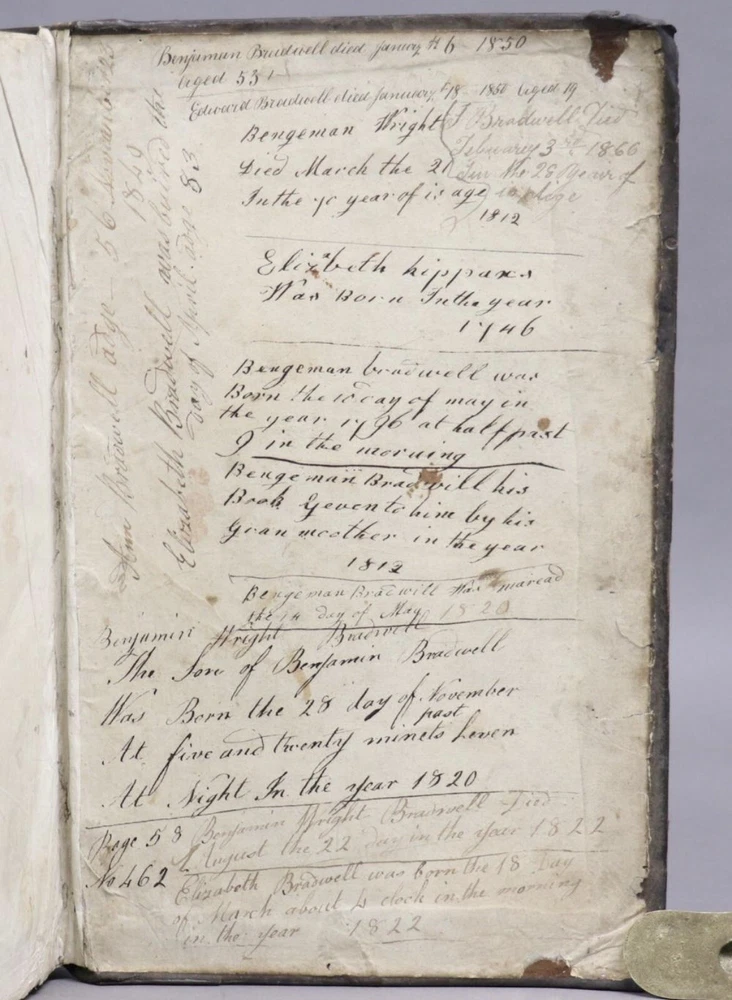 Benjaman Bradwell died January 6 1850
Aged 53
Edward Bradwell died January 18 1850 Aged 19
Bengeman Wright
Died March the 21
In the 70 year of is age
1812
J Bradwell Died
February 3 1866
In the 28 Year of
is
Elizbeth hippaxs
Was Born In the year
1746
Bengeman bradwell was
Born the 10 day of may in
the year 1796 at half past
9 in the morning
Bengeman Bradwill his
Book Geven to him by his
Gran meother in the year
1812
Bengeman Bradwill Was maread
the 14 day of May 1820
Benjamine Wright Bradwell
The Son of Benjamin Bradwell
Was Born the 28 day of November
At five and twenty minets past Leven
At Night In the year 1820
Page 58 Benjamin Wright Bradwell Died
August the 22 day in the year 1822
No 462 Elizabeth Bradwell was born the 18 Day
of March about 4 clock in the morning
in the year 1822
Ann Bradwell adge 56
Elizabeth Bradwell was buired the
day of April adge 83